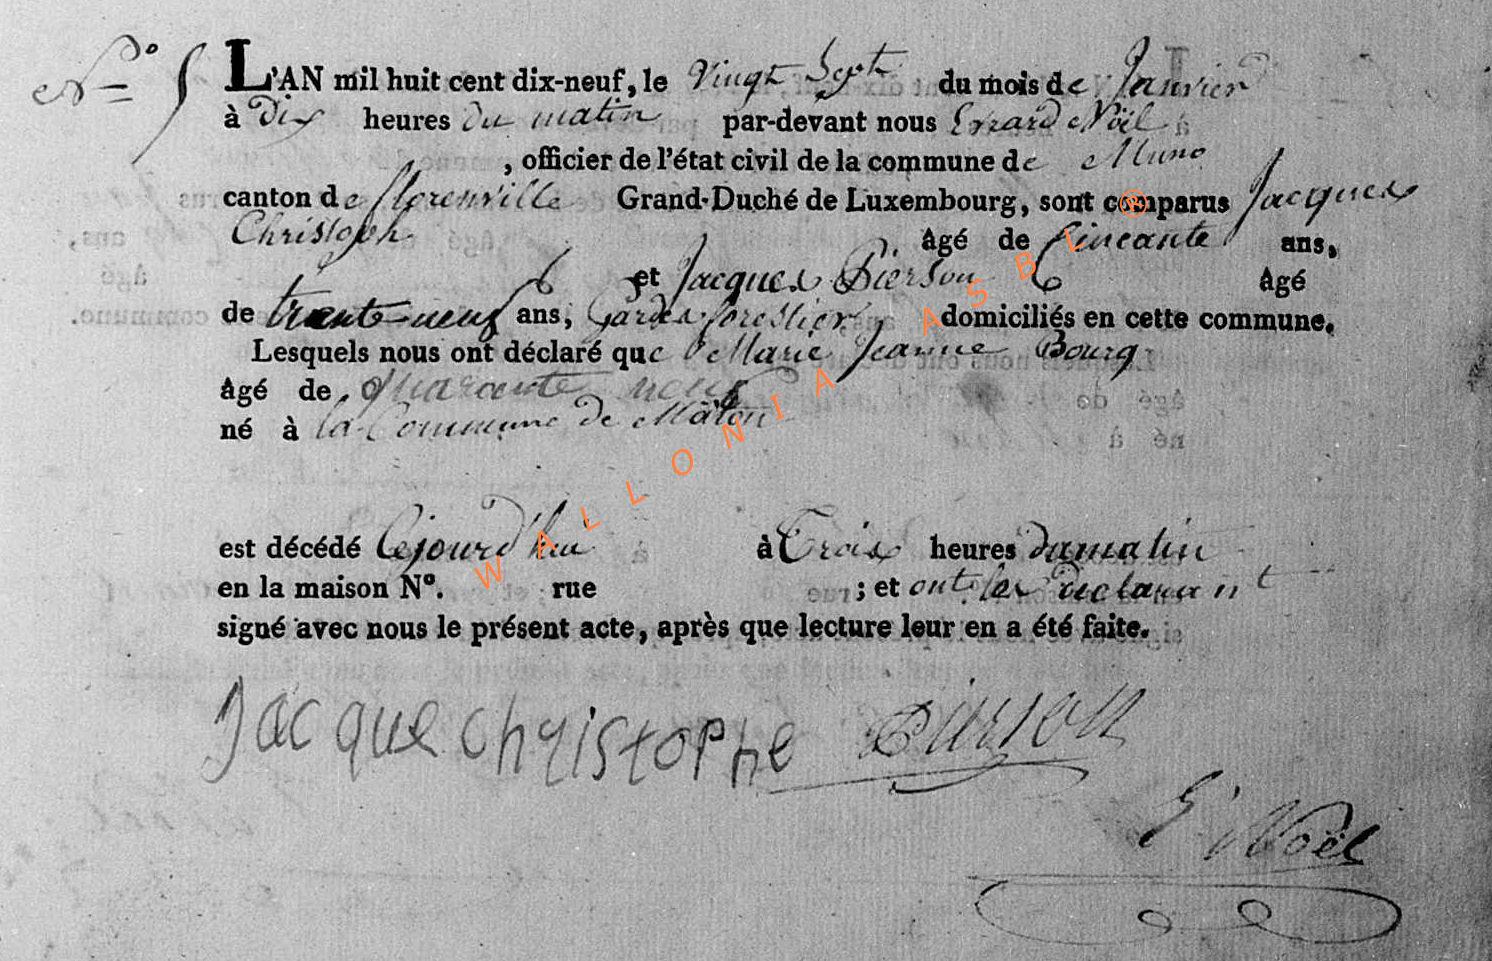 N.° 5 L'AN mil huit cent dix-neuf, le Vingt Sept du mois de Janvier
à Dix heures du matin par-devant nous Evrard Noël
, officier de l'état civil de la commune de Muno
canton de florenville Grand-Duché de Luxembourg, sont comparus Jacques
Christoph âgé de Cincante ans,
et Jacques Pierson âgé
de trente-neuf ans, Gardes forestier domiciliés en cette commune.
Lesquels nous ont déclaré que Marie Jeanne Bourg
âgé de quarante neuf
né à la Commune de Maton
est décédé Cejourd'hui à Trois heures du matin
en la maison N°. rue ; et ont les declarant
signé avec nous le présent acte, après que lecture leur en a été faite.
Jacque christophe Pierson
E Noël
WALLONIA ASBL ®